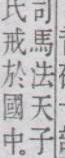 司馬法天子
氏戒於國中。